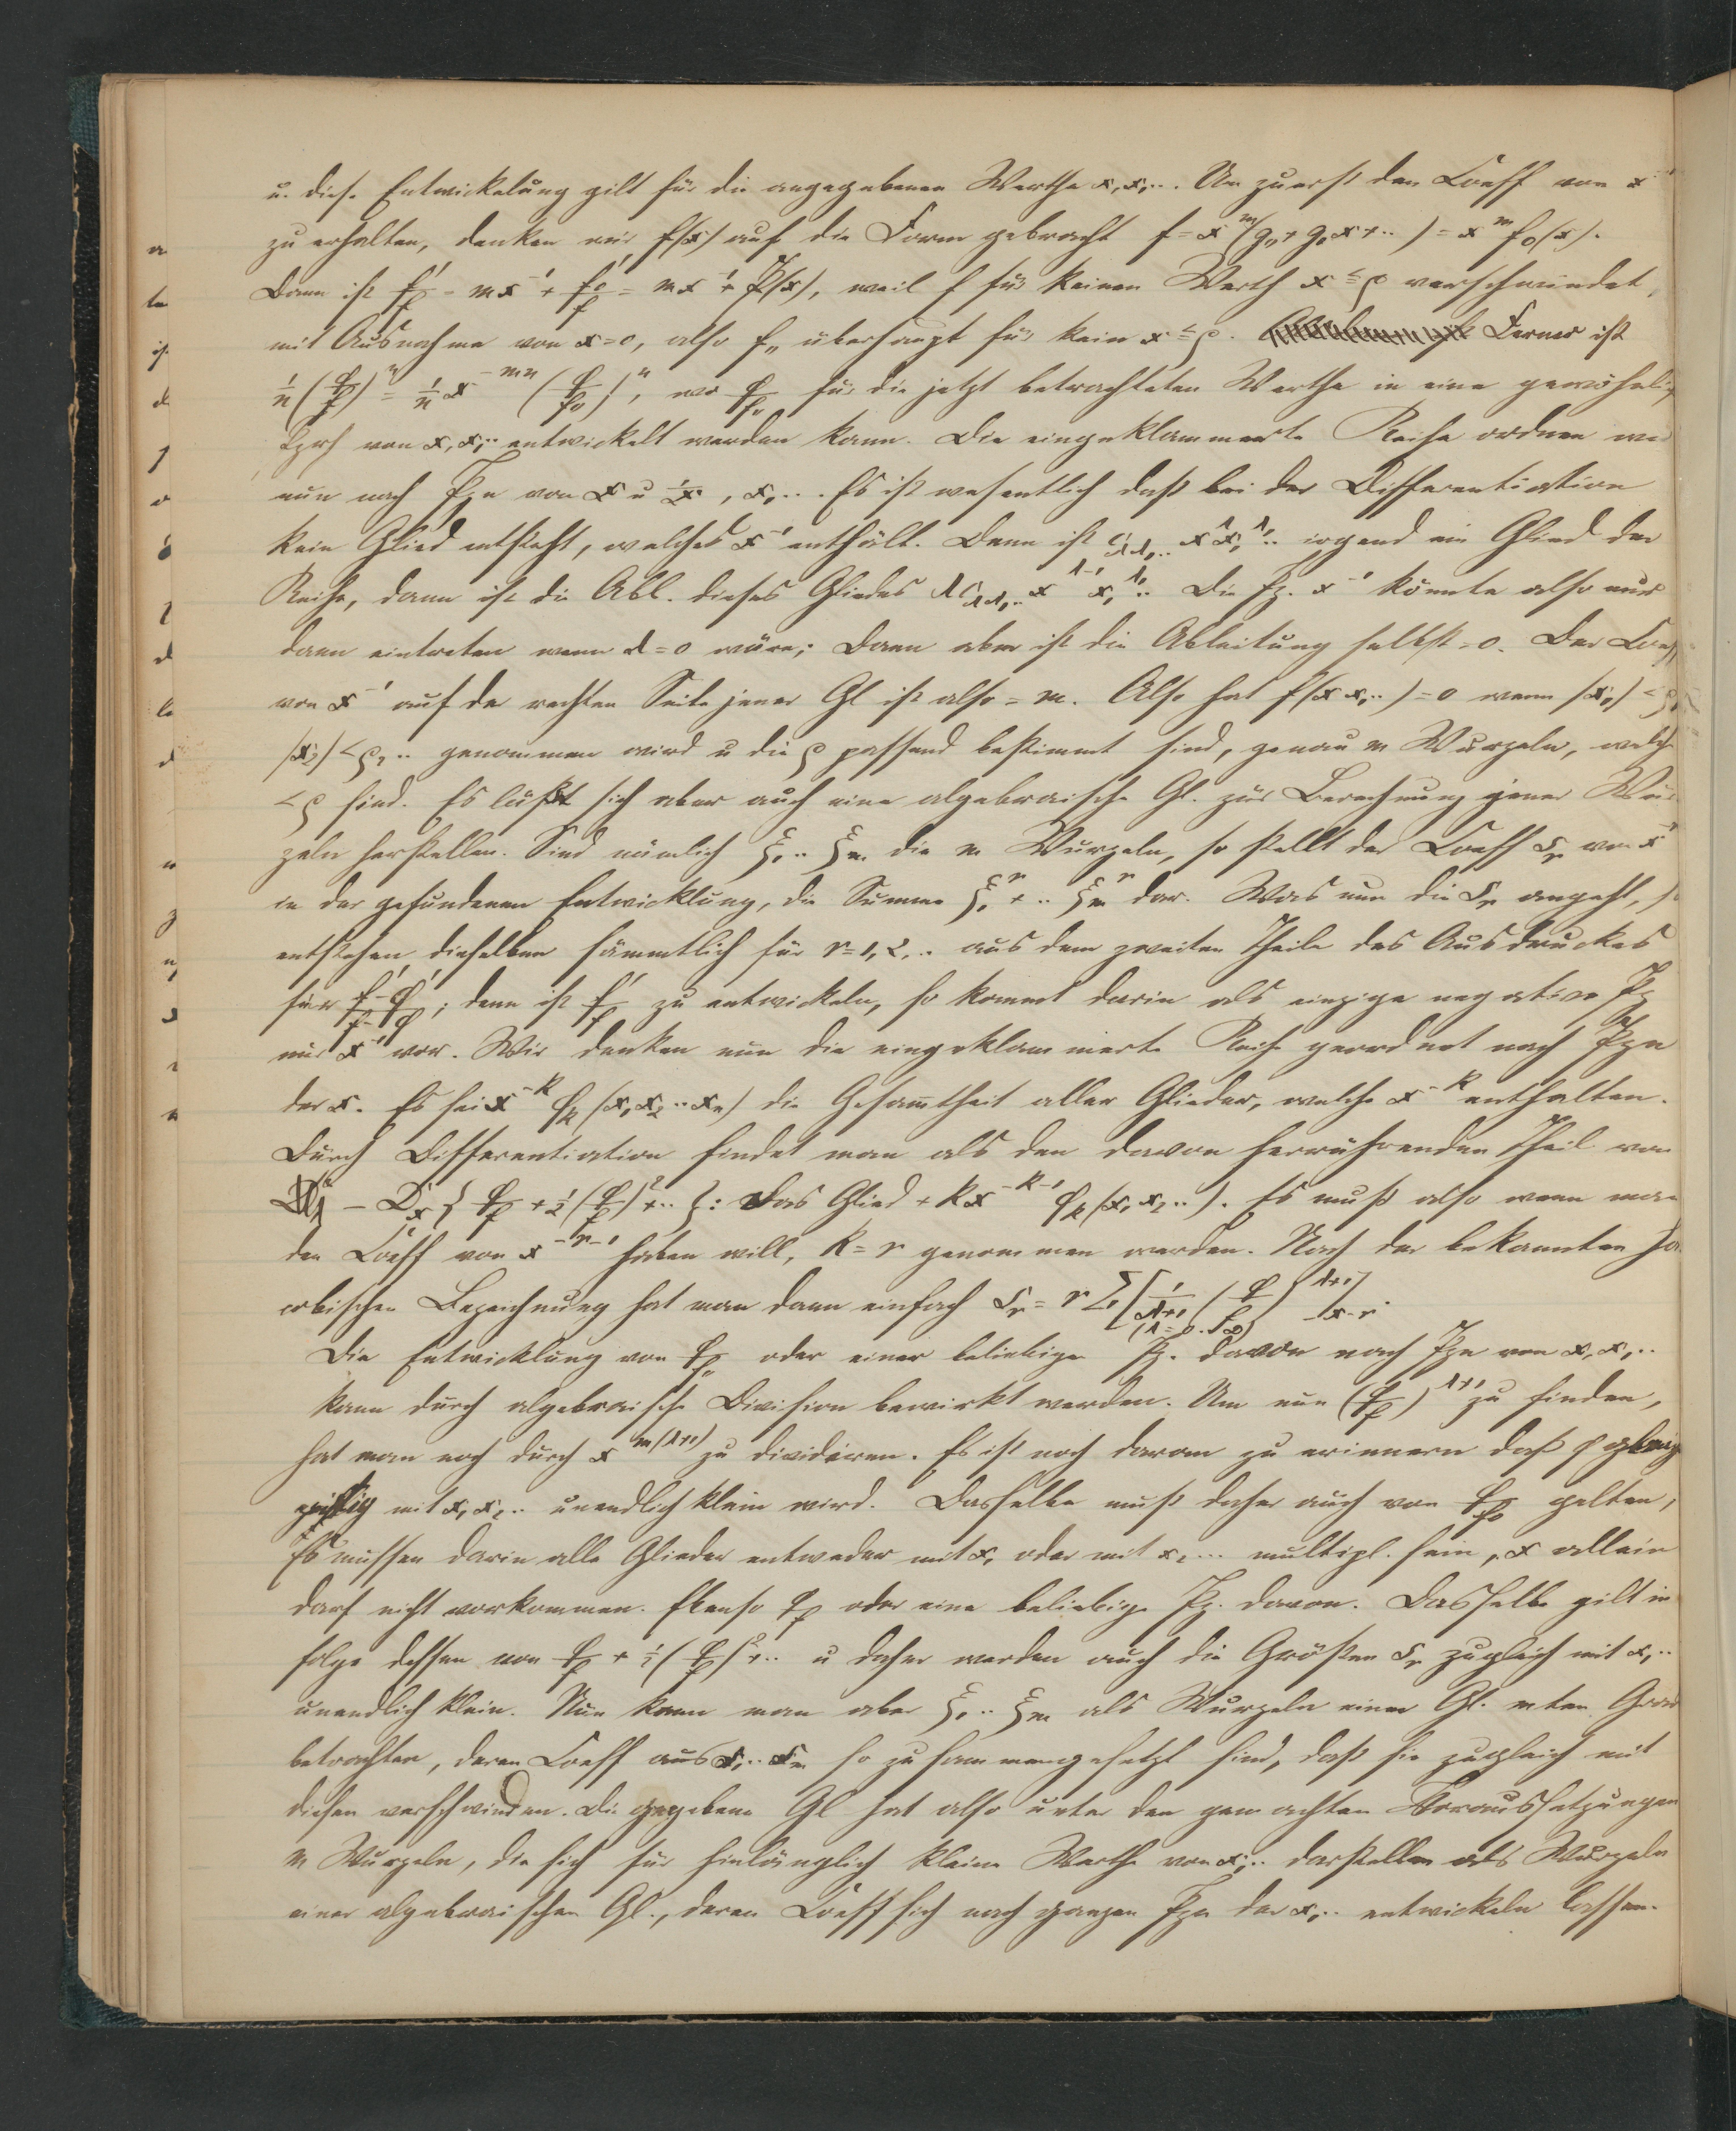 u. diese Entwickelung gilt für die angegebenen Werthe x, x₁... Um zuerst den Coeff von x⁻¹
zu erhalten, denken wir f(x) auf die Form gebracht f = x^m(g₀ + g₁x + ..) = x^m f₀(x).
Dann ist f'/f = mx⁻¹ + f₀'/f₀ = mx⁻¹ + P(x), weil f für keinen Werth x ≤ ρ verschwindet,
mit Ausnahme von x = 0, also f₀ überhaupt für kein x ≤ ρ. Ferner ist
1/n (φ/f)^n = 1/n x^{-mn} (φ/f₀)^n, wo φ/f₀ für die jetzt betrachteten Werthe in eine gewöhnlich
von x, x₁.. entwickelt werden kann. Die eingeklammerte Reihe ordnen wir
nun nach Pzn von x u 1/x, x₁... Es ist wesentlich daß bei der Differentiation
kein Glied entsteht, welches x⁻¹ enthält. Denn ist c_{λλ₁..} x^λ x₁^{λ₁}.. irgend ein Glied der
Reihe, dann ist die Abl. dieses Gliedes λc_{λλ₁..} x^{λ-1} x₁^{λ₁}.. Die Pz. x⁻¹ könnte also nur
dann eintreten wenn λ = 0 wäre; dann aber ist die Ableitung selbst = 0. Der Coeff
von x⁻¹ auf der rechten Seite jener Gl ist also = m. Also hat f(x x₁..) = 0 wenn |x₁| < ρ₁
|x₂| < ρ₂.. genommen wird u die ρ passend bestimmt sind, genau m Wurzeln, welche
< ρ sind. Es läßt sich aber auch eine algebraische Gl. zur Berechnung jener Wur
zeln herstellen. Sind nämlich ξ₁.. ξ_m die m Wurzeln, so stellt der Coeff s_r von x
in der gefundenen Entwicklung, die Summe ξ₁^r + .. ξ_m^r dar. Was nun die s_r angeht, so
entstehen dieselben sämmtlich für r = 1, 2,.. aus dem zweiten Theile des Ausdruckes
für (f'-φ')/(f-φ); denn ist f'/f zu entwickeln, so kommt darin als einzige negative Pz
nur x⁻¹ vor. Wir denken nun die eingeklammerte Reihe geordnet nach Pzn
der x. Es sei x^{-k} φ_k(x₁ x₂ .. x_n) die Gesamtheit aller Glieder, welche x^{-k} enthalten.
Durch Differentiation findet man als den davon herrührenden Theil von
− D_x { φ/f + 1/2 (φ/f)² + .. }: das Glied + kx^{-k-1} φ_k(x₁ x₂ ..). Es muß also wenn man
den Coeff von x^{-r-1} haben will, k = r genommen werden. Nach der bekannten Ja
cobischen Bezeichnung hat man dann einfach s_r = r Σ [1/(λ+1) (φ/f)^{λ+1}]_{x^{-r}}.
(λ = 0..∞)
Die Entwicklung von φ/f₀ oder einer beliebigen Pz. davon nach Pzn von x, x₁..
kann durch algebraische Division bewirkt werden. Um nun (φ/f)^{λ+1} zu finden,
hat man noch durch x^{m(λ+1)} zu dividiren. Es ist noch daran zu erinnern daß φ
mit x₁ x₂.. unendlich klein wird. Dasselbe muß daher auch von φ/f₀ gelten,
Es müssen darin alle Glieder entweder mit x₁ oder mit x₂... multipl. sein, x allein
darf nicht vorkommen. Ebenso φ/f oder eine beliebige Pz. davon. Dasselbe gilt in
folge dessen von φ/f + 1/2 (φ/f)² + .. u daher werden auch die Größen s_r zugleich mit x₁..
unendlich klein. Nun kann man aber ξ₁.. ξ_m als Wurzeln einer Gl. mten Grad
betrachten, deren Coeff aus s₁.. s_m so zusammengesetzt sind, daß sie zugleich mit
diesen verschwinden. Die gegebene Gl hat also unter den gemachten Voraussetzungen
m Wurzeln, die sich für hinlänglich kleine Werthe von x₁.. darstellen als Wurzeln
einer algebraischen Gl., deren Coeff sich nach ganzen Pzn der x₁.. entwickeln lassen.